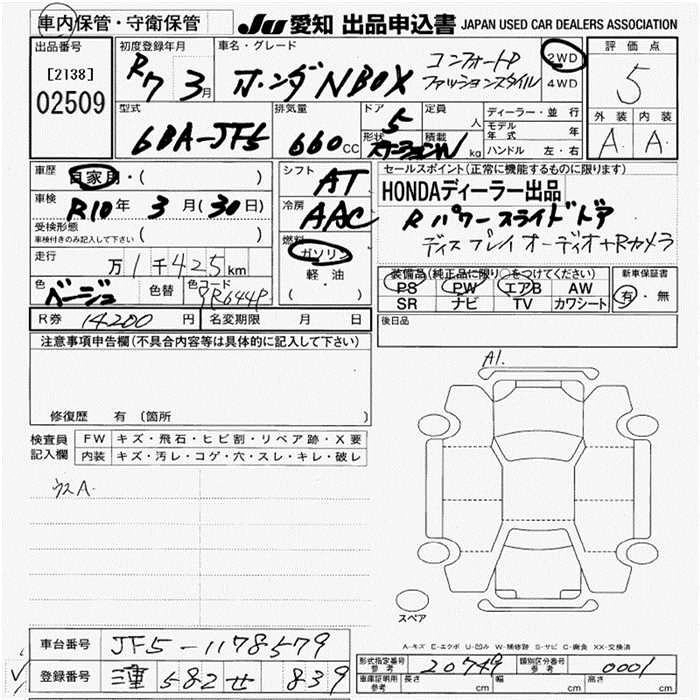 車内保管・守衛保管
JU 愛知 出品申込書 JAPAN USED CAR DEALERS ASSOCIATION
出品番号
[2138]
02509
初度登録年月
R7 3月
車名・グレード
ホンダ NBOX
コンフォートP
ファッションスタイル
2WD
4WD
評価点
5
外装 内装
A A
型式
6BA-JF5
排気量
660 CC
ドア 5
形状 ステーションW
定員 人
積載 kg
ディーラー・並行
モデル年式 年
ハンドル 左・右
車歴
自家用・( )
車検
R10年 3月(30日)
受検形態
車検付きのみ記入して下さい ( )
走行
万1千425km
色
ベージュ
色替
色コード
YR644P
シフト
AT
冷房
AAC
燃料
ガソリン
軽油
( ・ )
セールスポイント(正常に機能するものに限ります)
HONDAディーラー出品
R パワースライドドア
ディスプレイオーディオ+Rカメラ
装備品(純正品に限り○をつけてください)
PS PW エアB AW
SR ナビ TV カワシート
新車保証書
有・無
R券 14200 円
名変期限 月 日
後日品
注意事項申告欄(不具合内容等は具体的に記入して下さい)
修復歴 有 〔箇所 〕
検査員記入欄
FW キズ・飛石・ヒビ割・リペア跡・X要
内装 キズ・汚レ・コゲ・穴・スレ・キレ・破レ
ウスA.
A1.
スペア
A-キズ E-エクボ U-凹み W-補修跡 S-サビ C-腐食 XX-交換済
車台番号 JF5-1178579
登録番号 三重 582 せ 839
形式指定番号 参考 20749
類別区分番号 参考 0001
車庫証明用 参考 長さ cm 幅 cm 高さ cm